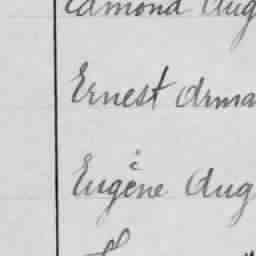 Edmond Aug
Ernest Arma
Eugène Aug